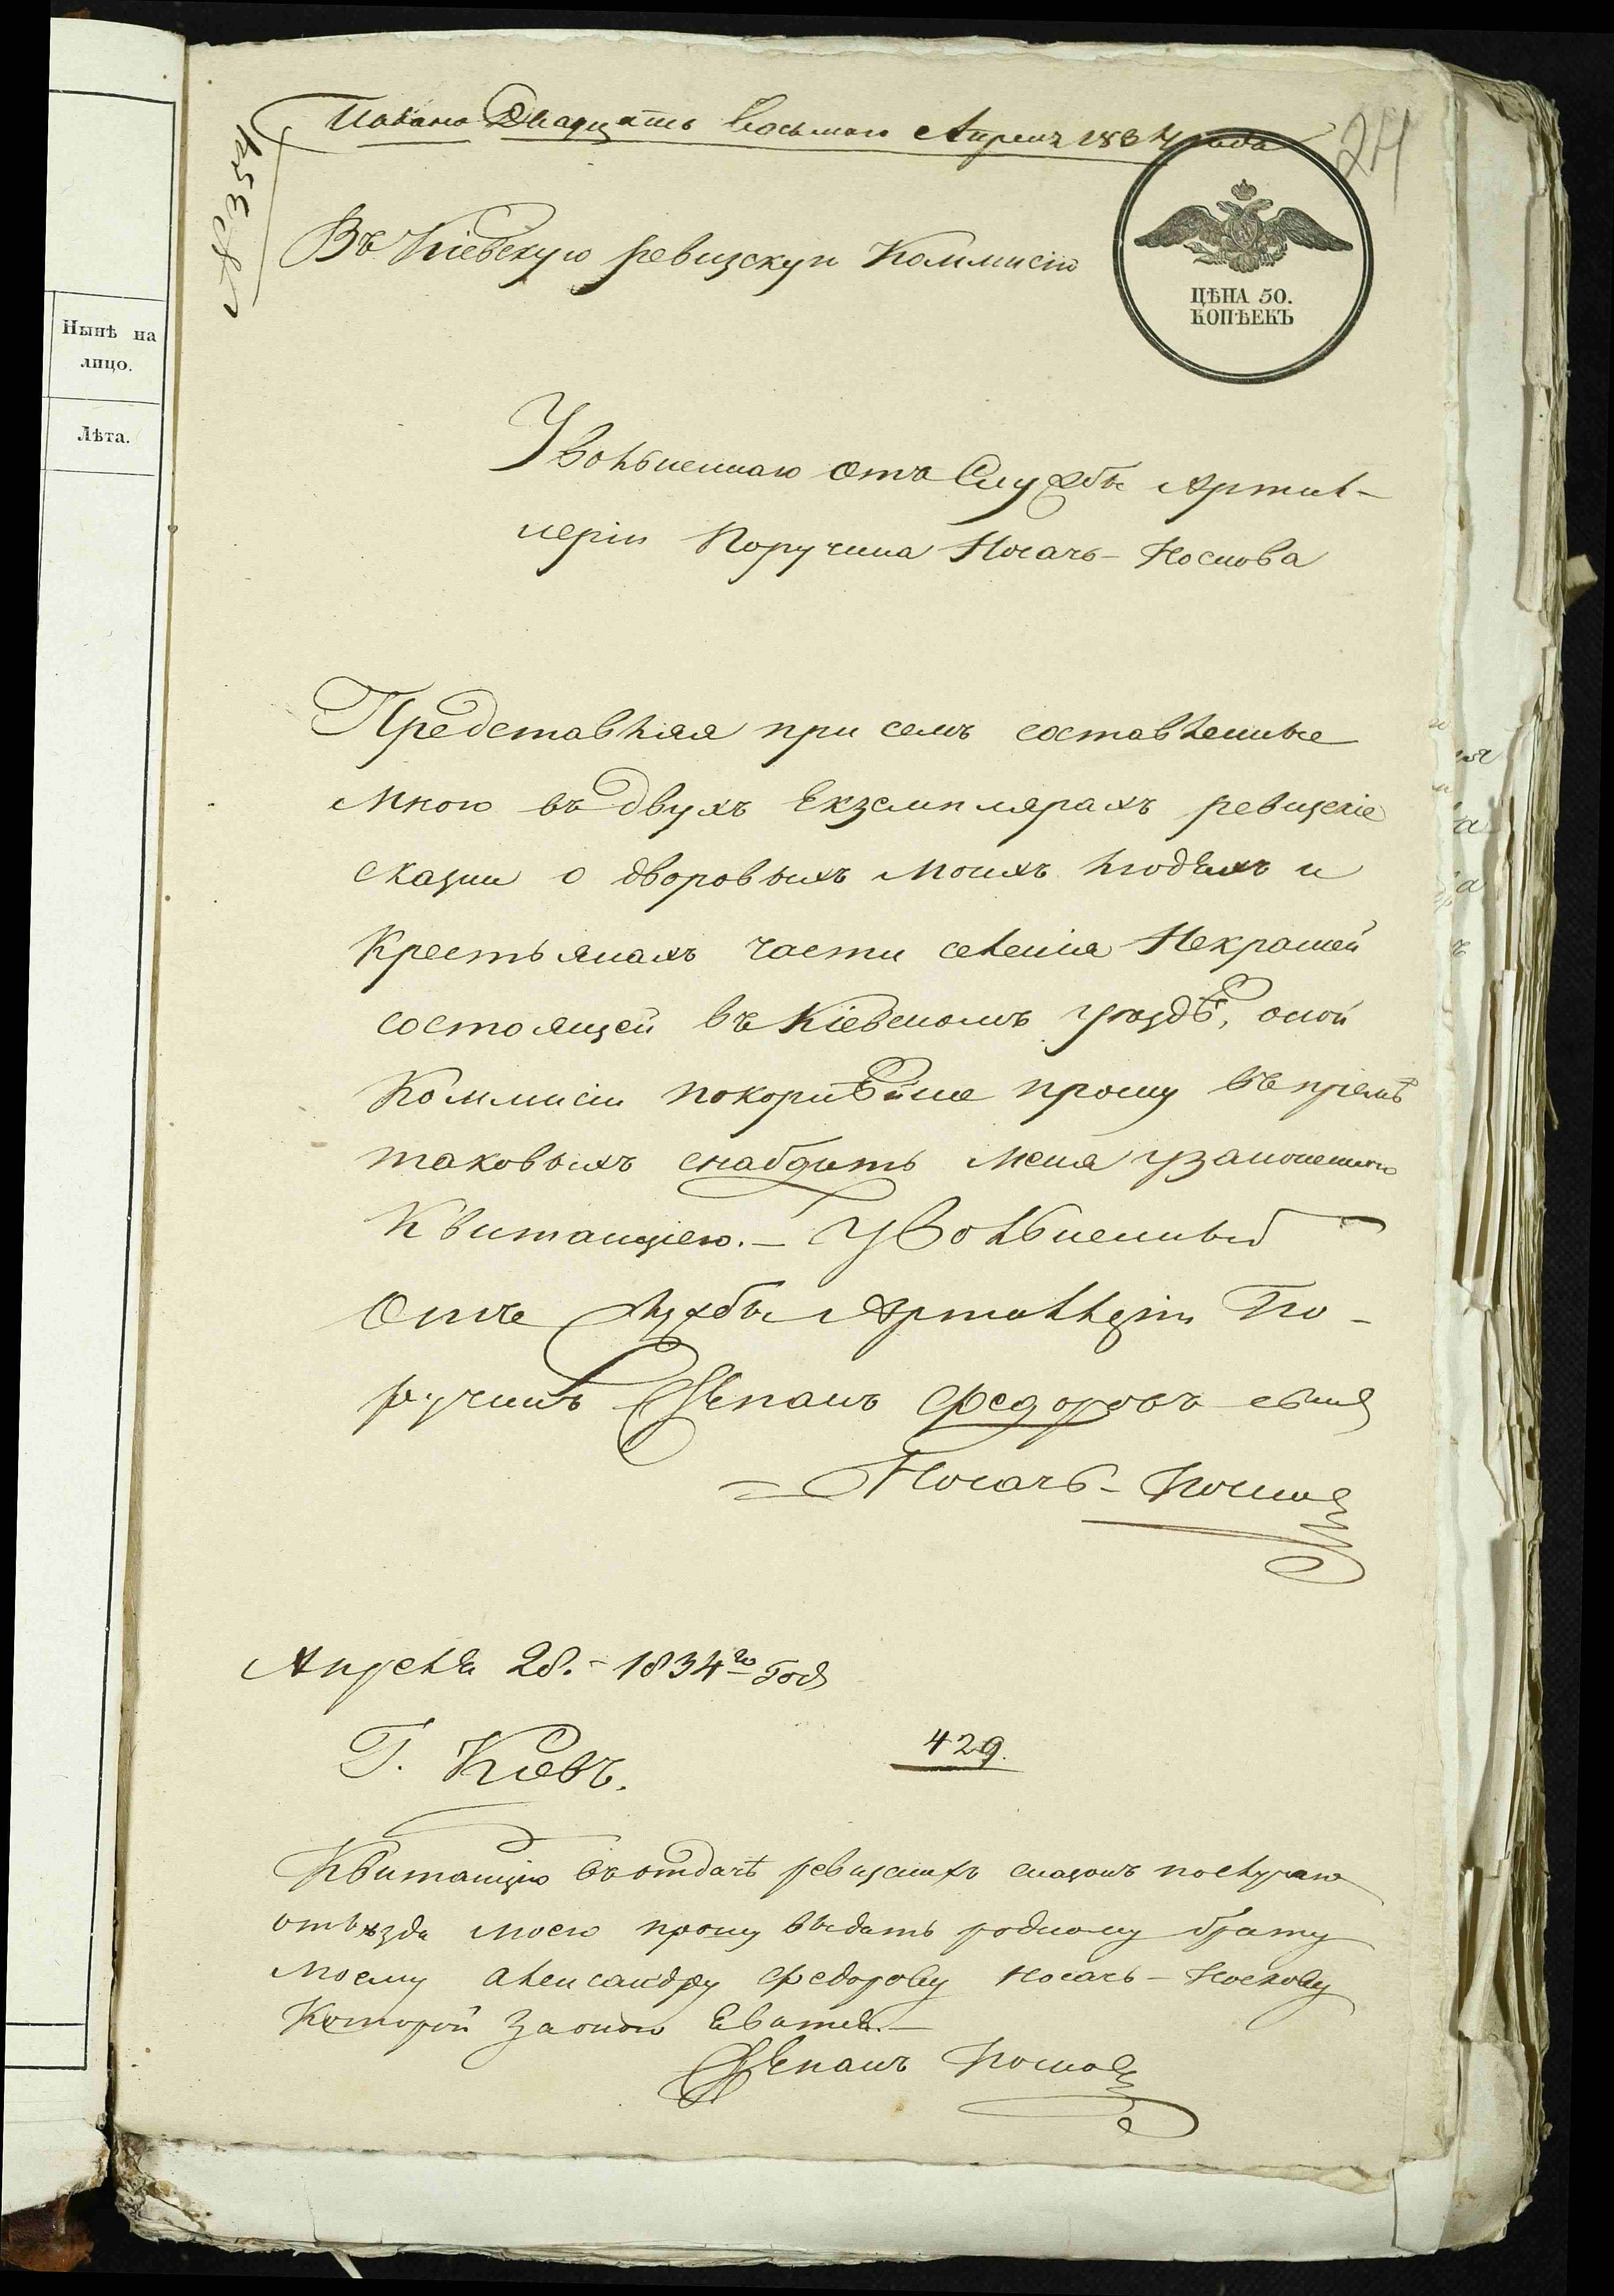 Подано Двадцать Восьмаго Апреля 1834 года
24
№ 354
Въ Кіевскую ревизскую Коммисію
ЦѢНА 50.
КОПѢЕКЪ
Нынѣ на
лицо.
Лѣта.
Увольненнаго отъ Службы Артил-
леріи Поручика Носачъ-Носкова
Представляя при семъ составленные
мною въ двухъ Екземплярахъ ревизскіе
сказки о дворовыхъ моихъ людяхъ и
Крестьянахъ части селенія Некрашей
состоящей въ Кіевскомъ уѣздѣ, оной
Коммисіи покорнѣйше прошу въ пріемѣ
таковыхъ снабдить меня узаконенною
Квитанціею. – Увольненный
Отъ Службы Артиллеріи По-
ручикъ Степанъ Федоровъ сынъ
Носачъ-Носковъ
Апреля 28. – 1834го года
Г. Кіевъ.
429.
Квитанцію въ отдачѣ ревизскихъ сказокъ по случаю
отъѣзда моего прошу выдать родному брату
моему Александру Федорову Носачъ-Носкову
Которой за оною
Степанъ Носковъ